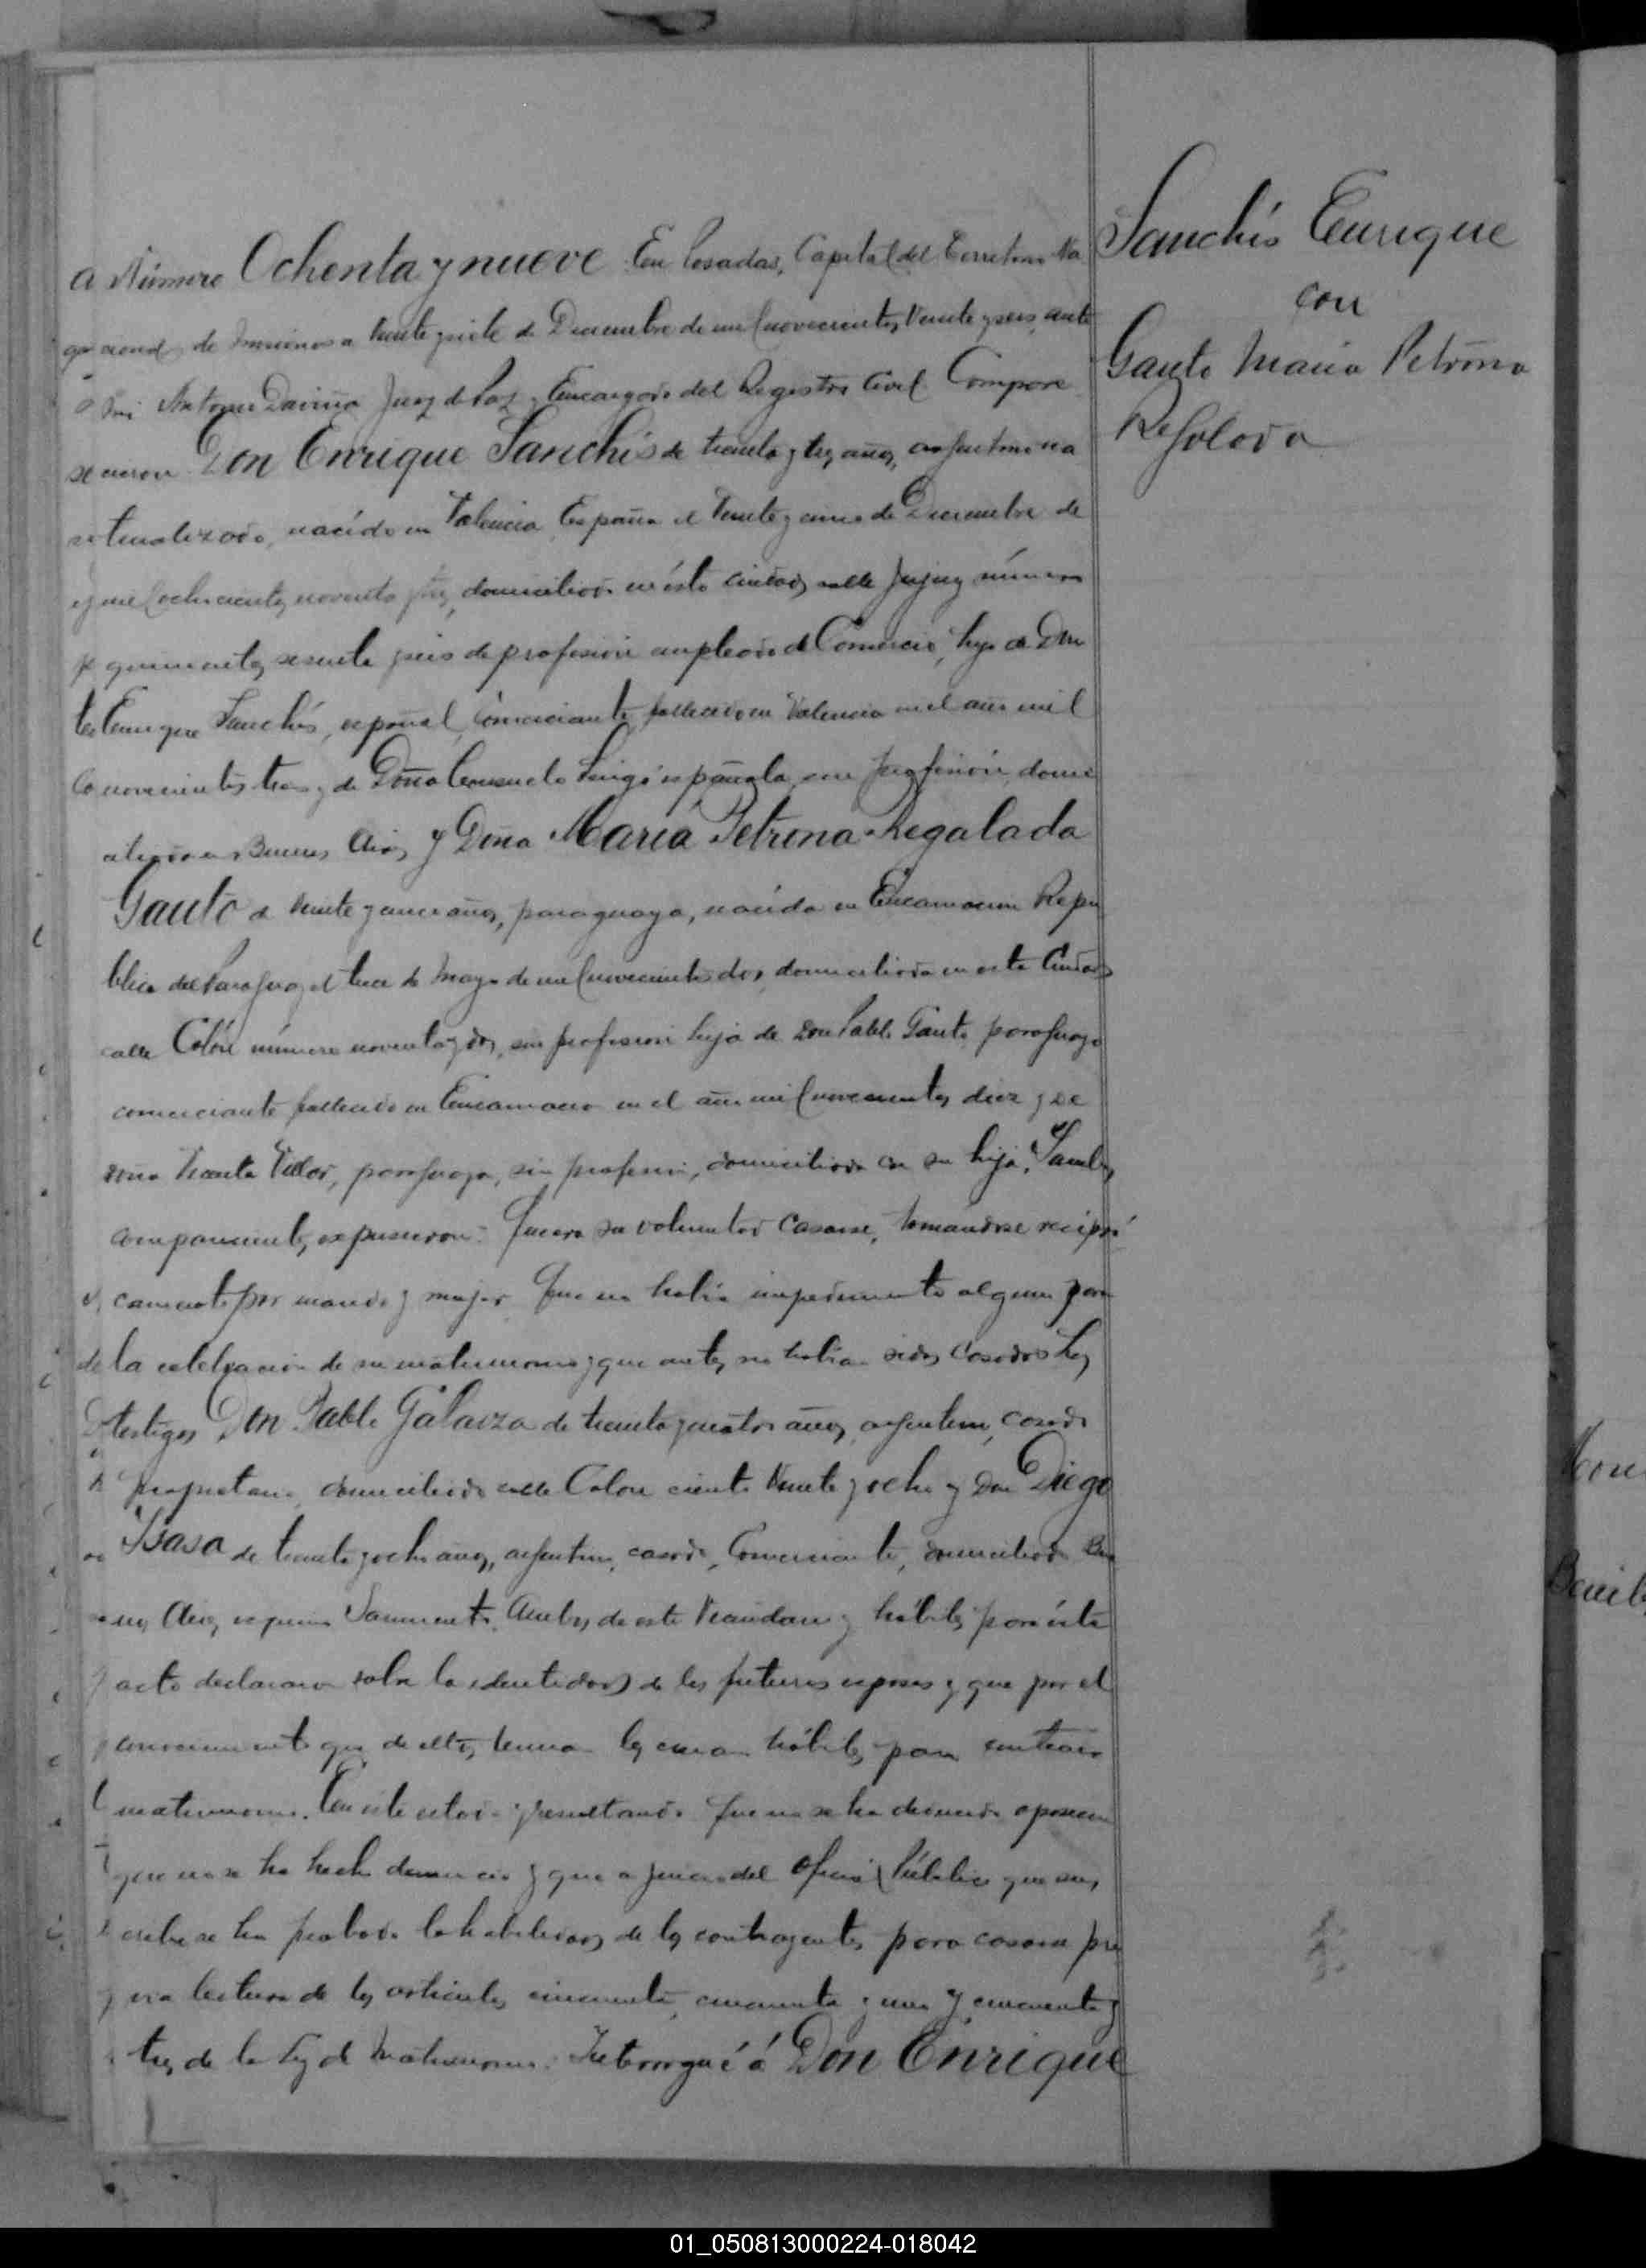 Número Ochenta y nueve En Posadas, Capital del Territorio Na
cional de Misiones a veinte y siete de Diciembre de mil novecientos veinte y seis, ante
mi Antonio Daviña Juez de Paz y Encargado del Registro Civil Compare
cieron Don Enrique Sanchís de treinta y tres años, argentino na
turalizado, nacido en Valencia España el veinte y cinco de Diciembre de
mil ochocientos noventa y tres, domiciliado en ésta ciudad calle Jujuy número
quinientos sesenta y seis de profesión empleado de Comercio, hijo de Don
Enrique Sanchís, español, comerciante, fallecido en Valencia en el año mil
novecientos tres y de Doña Consuelo española, sin profesión, domi
ciliada en Buenos Aires y Doña María Petrona Regalada
Gauto de veinte y cuatro años, paraguaya, nacida en Encarnación Repú
blica del Paraguay el trece de Mayo de mil novecientos dos, domiciliada en esta Ciudad
calle Colón número noventa y dos, sin profesión hija de Don Pablo Gauto, paraguayo
comerciante fallecido en Encarnación en el año mil novecientos diez y de
doña paraguaya, sin profesión, domiciliada con su hija. Sanchís
comparecientes, expusieron: Que era su voluntad casarse, tomándose recípro
camente por marido y mujer. Que no había impedimento alguno para
la celebración de su matrimonio y que antes no habían sido casados Los
testigos Don Pablo Galarza de treinta y cuatro años, argentino, casado
propietario, domiciliado calle Colon ciento veinte y ocho y Don Diego
Isasa de treinta y ocho años, argentino, casado, Comerciante, domiciliado Bue
nos Aires esquina Sarmiento. Ambos de este vecindario y hábiles para éste
acto declararon sobre la identidad de los futuros esposos y que por el
conocimiento que de ellos tenían los creían hábiles para contraer
matrimonio. En este estado y resultando Que no se ha deducido oposición
que no se ha hecho denuncia y que a juicio del Oficial Público que sus
cribe se ha probado la habilidad de los contrayentes para casarse pré
via lectura de los artículos cincuenta, cincuenta y uno y cincuenta y
tres de la Ley de Matrimonio. Interrogué á Don Enrique
Sanchís Enrique
con
Gauto Maria Petrona
Regalada
01_050813000224-018042